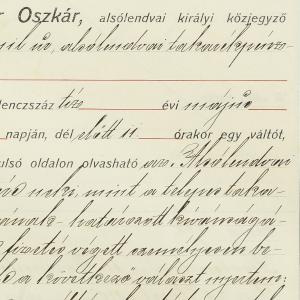 r Oszkár, alsólendvai királyi közjegyző
úr, alsólendvai takarékpénz-
lenczszáz tíz évi május
napján, dél előtt 11 órakor egy váltót,
ulsó oldalon olvasható az Alsólendvai
neki, mint a telepes taka-
határozott kívánságá-
fizetés végett személyesen be-
a következő választ nyertem: